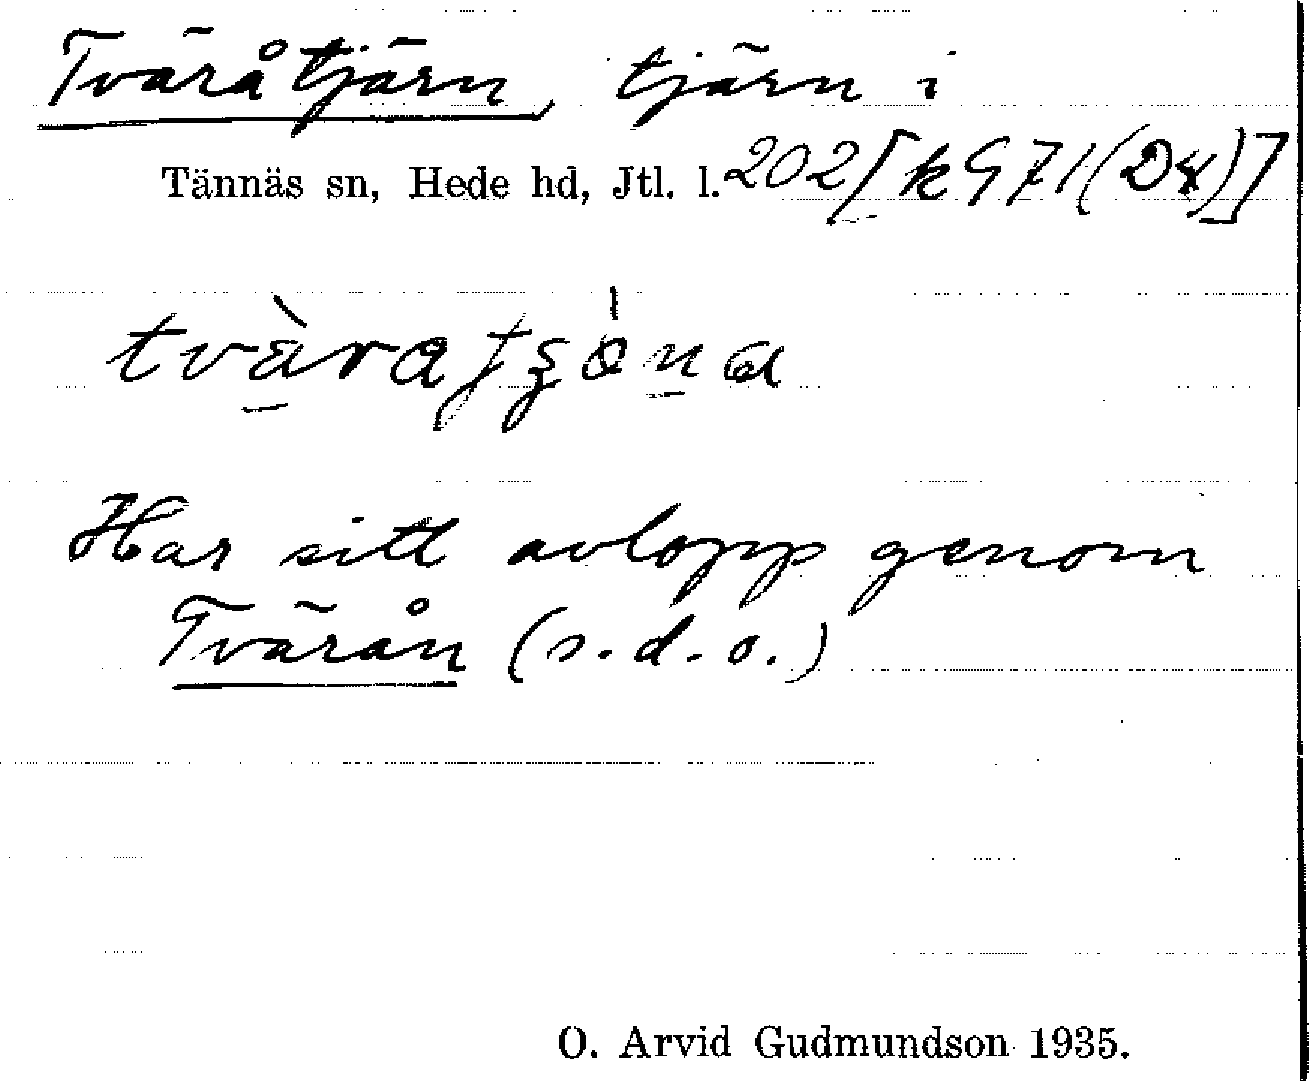 Tväråtjärn, tjärn i
Tännäs sn, Hede hd, Jtl. l. 202[k971(Dx)]
Har sitt avlopp genom
Tvärån (s.d.o.)
O. Arvid Gudmundson 1935.